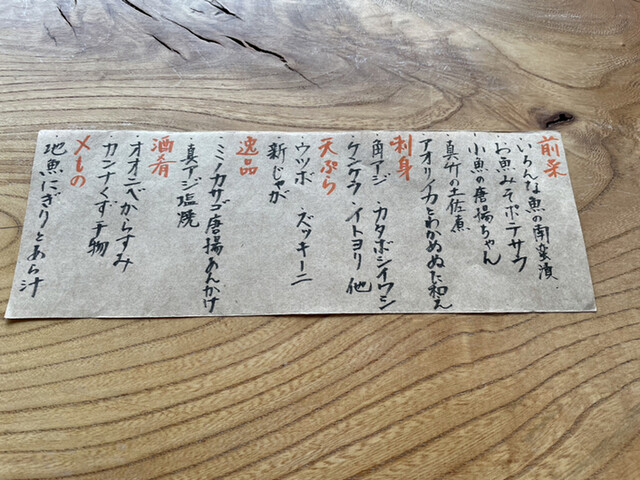 前菜
・いろんな魚の南蛮漬
・わ魚みそポテサラ
・小魚の唐揚ちゃん
・真竹の土佐煮
・アオリイカとわかめぬた和え
刺身
・角アジ・カタボシイワシ
・ケンケラ・イトヨリ 他
天ぷら
・ウツボ ・ズッキーニ
・新じゃが
逸品
・ミノカサゴ唐揚あんかけ
・真アジ塩焼
酒肴
・オオニベからすみ
・カンナくず干物
〆もの
・地魚にぎりとあら汁